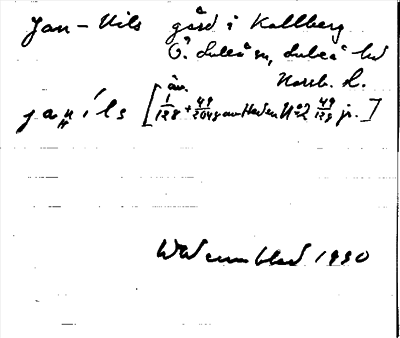 Jan-Nils gård i Kallberg
Ö. Luleå sn, Luleå hd
Norrb. l.
janils [ även 1/128 + 49/2048 av Heden No 2 49/128 jr. ]
W Wennblad 1930